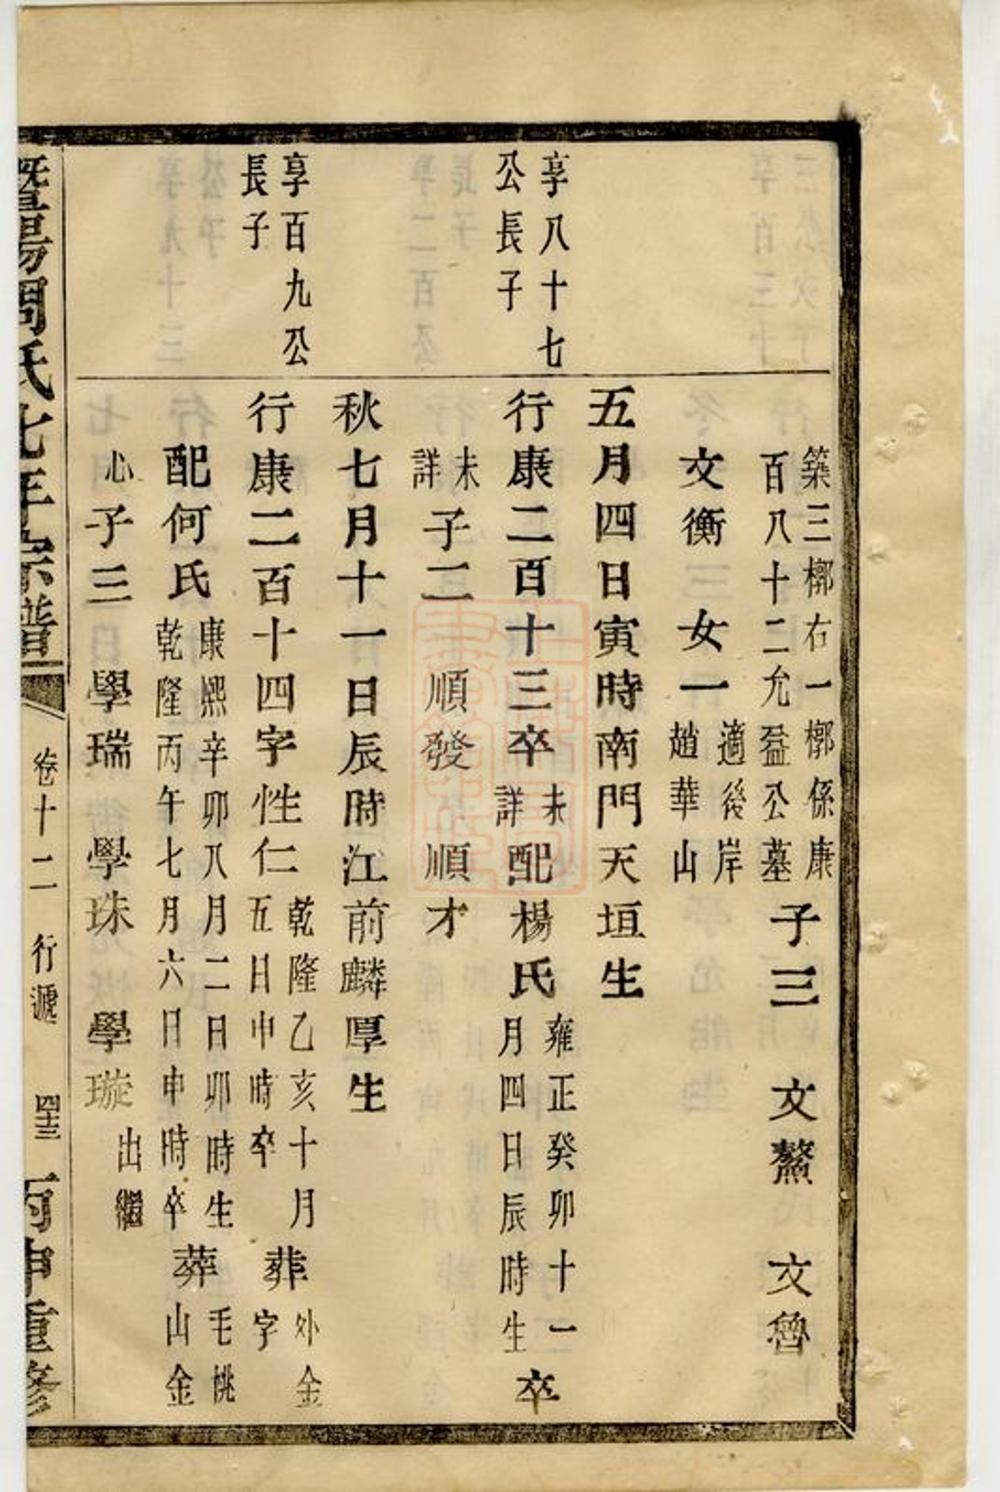 築三槨右一槨係康
百八十二允益公墓
子三　文鰲　文魯
文衡　女一
適後岸
趙華山
享八十七
公長子
五月四日寅時南門天垣生
行康二百十三卒
未
詳
配楊氏
雍正癸卯十一
月四日辰時生
卒
未
詳
子二　順發　順才
享百九公
長子
秋七月十一日辰時江前麟厚生
行康二百十四字性仁
乾隆乙亥十月
五日申時卒
葬
外金
字
配何氏
康熙辛卯八月二日卯時生
乾隆丙午七月六日申時卒
葬
毛桃
山金
心
子三　學瑞　學珠　學璇
出繼
暨陽周氏七年宗譜
卷十二　行遞　四十三
丙申重修